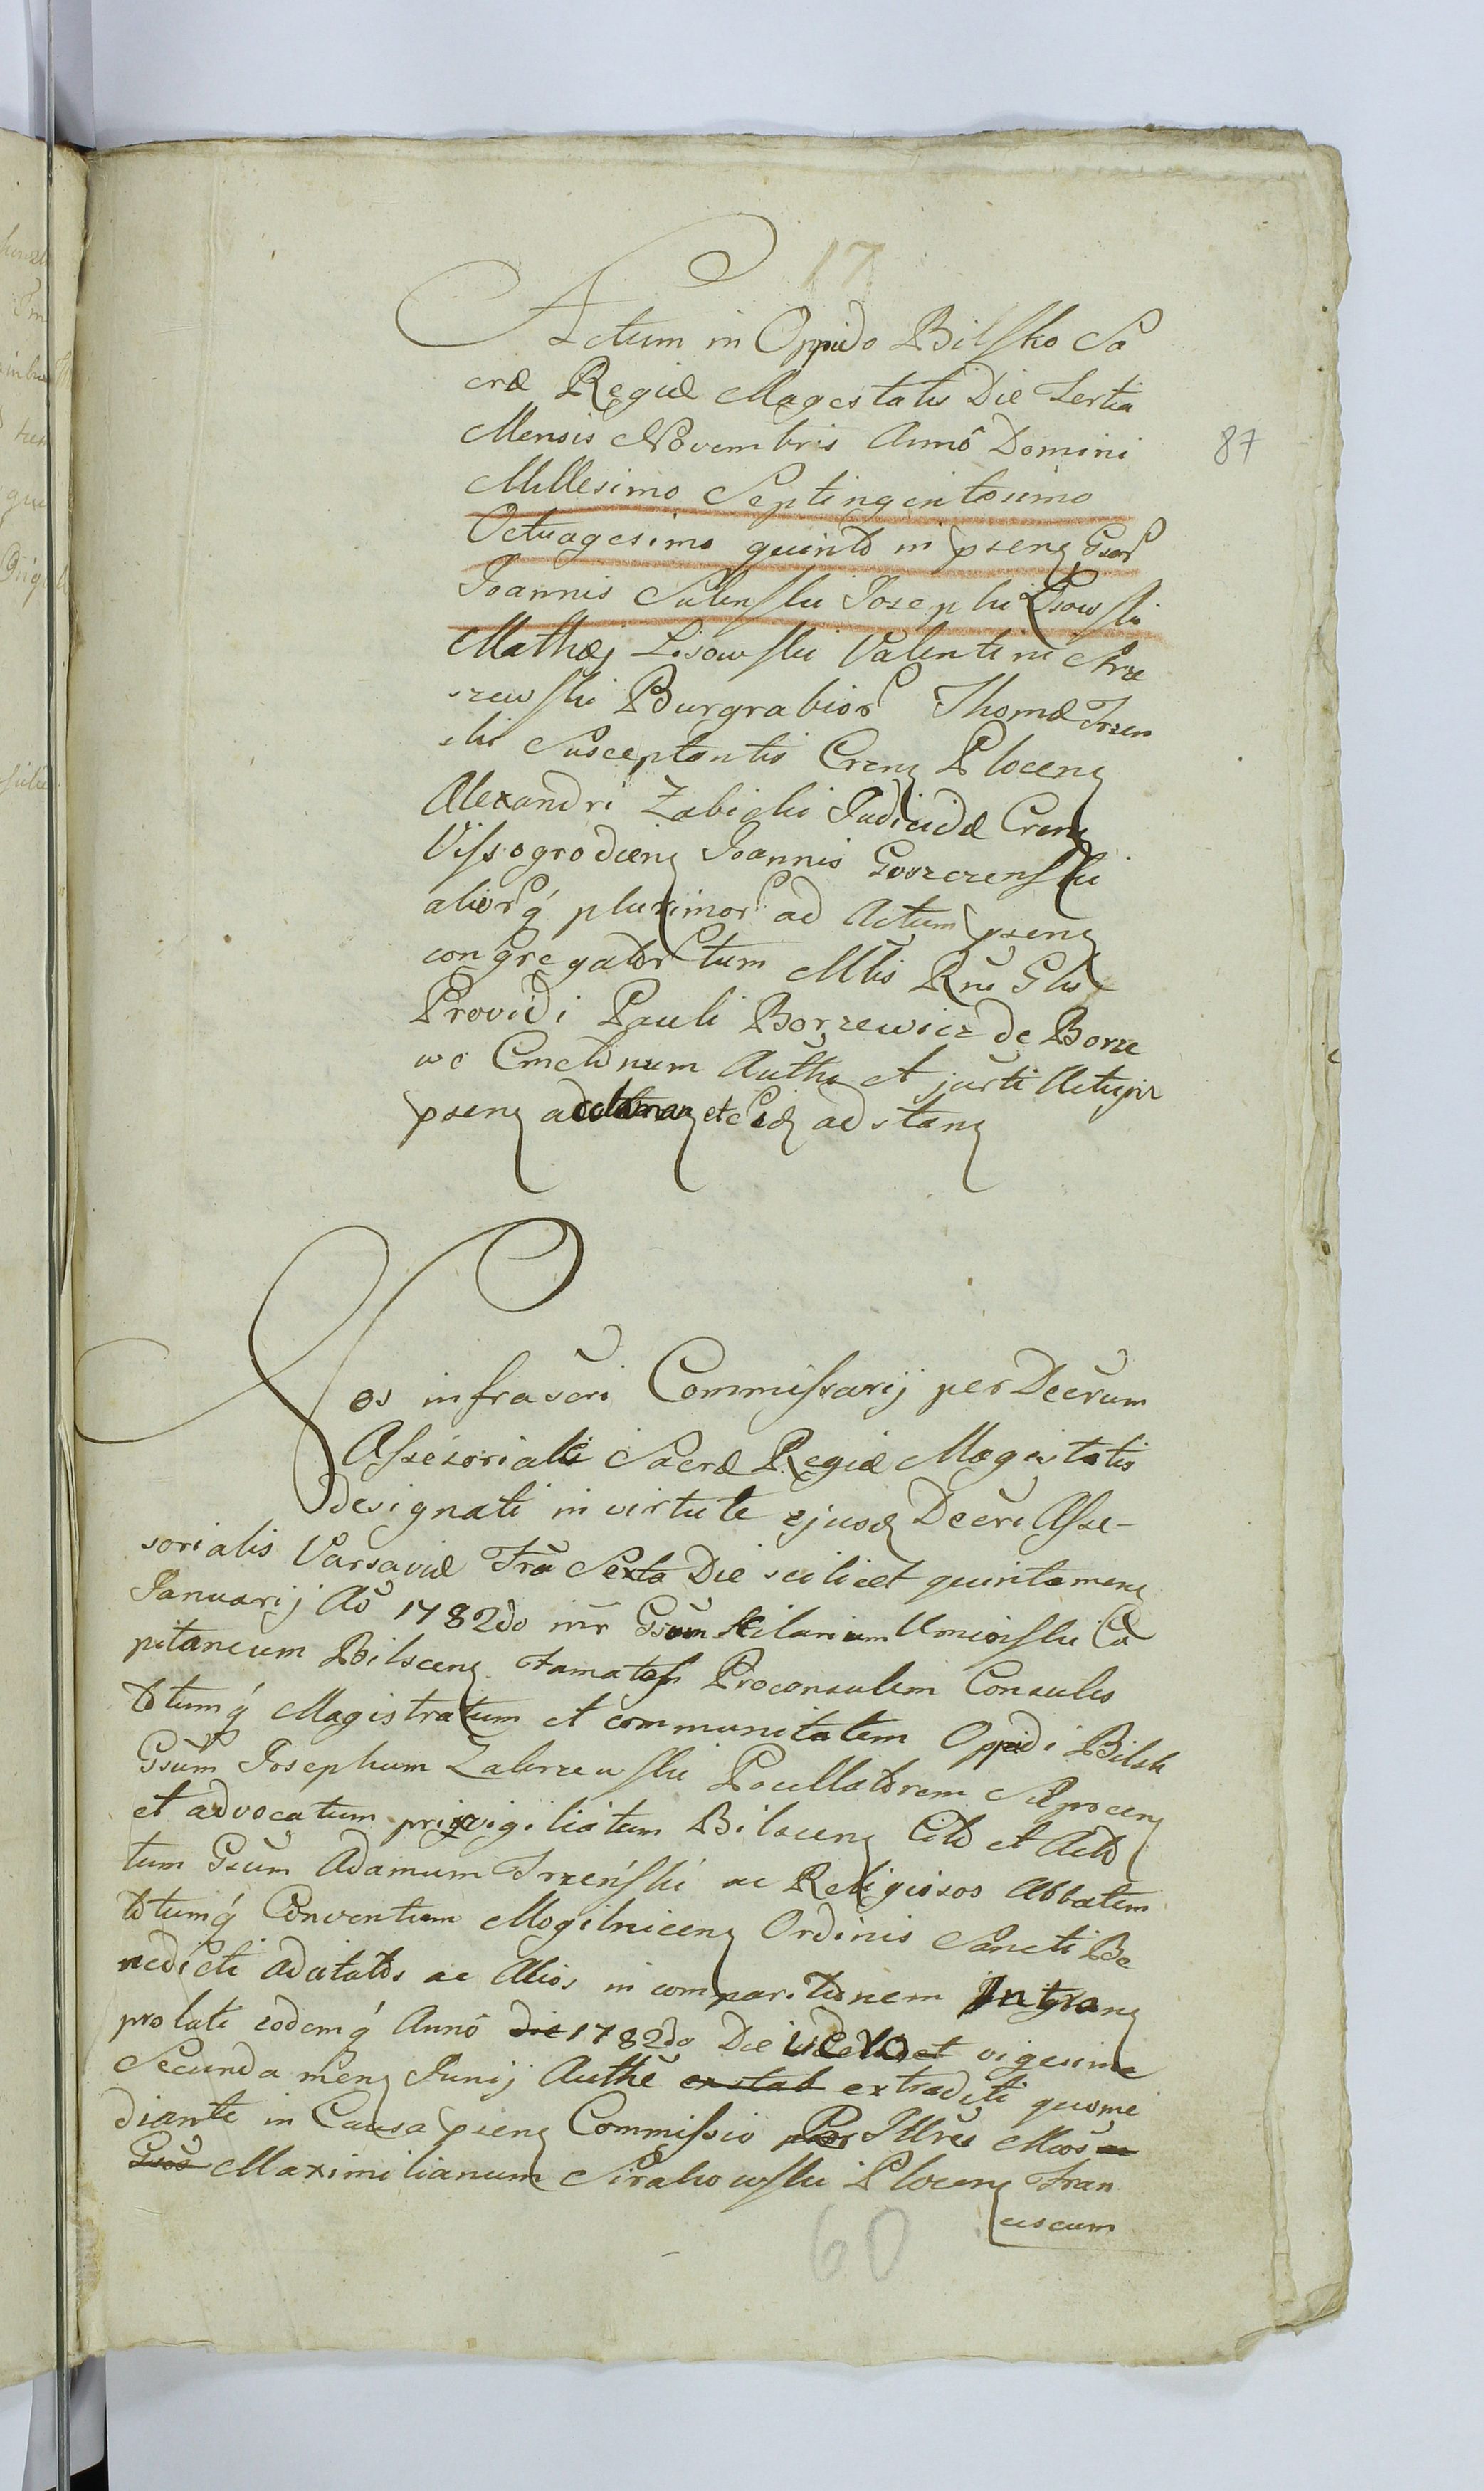 17
Actum in Oppido Bilsko Sa
cræ Regiæ Magestatis Die Tertia
Mensis Novembris Annô Domini
87
Millesimo Septingentesimo
Octuagesimo quinto in pseng Gsor
Joannis Sulenski Josephi Lisowski
Mathæj Lisowski Valentini
szewski Burgrabior Thomæ Trzen
ski Susceptantis Creng Ploceng
Alexandri Zabicki Judicidæ Creng
Vissogrodieng Joannis Gorczenski
alior q́ plurimor ad Actum pseng
congregator tum Mlis Rnẽ Glis
Providi Pauli Borzewicz de Borze
wo Cmetonum Authẽ et jurti
pseng adstang
Nos infrascri Commissarij per Decrum
Assesoriale Sacræ Regiæ Magestatis
designati in virtute ejusd Decri Asse-
sorialis Varsaviæ Fra Sexta Die scilicet quinta meng
Januarij Aõ 1782do inr Gsum Hilarium Uminski Ca
pitaneum Bilsceng Famatos Proconsulem Consules
totumq́ Magistratum et communitatem Oppidi Bilsk
Gsum Josephum Zakrzewski Pocillatorem
et advocatum privigiliatum Bilsceng Cito et Acto
tum Gsum Adamum Trzeński ac Religiosos Abbatem
totumq́ Conventum Mogilniceng Ordinis Sancti Be
nedicti adcitatos ac Alios in comparitionem
prolati eodemq́ Annô die 1782do Die vero vigesima
Secunda meng Junij Authẽ exstab extraditi quo me
diante in Causa pseng Commissio Per Illres Mcos ac
Gsos Maximilianum Sirakowski Ploceng Fran
ciscum
60